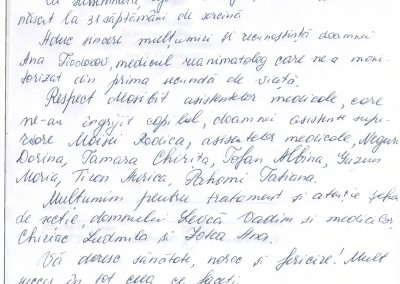 născut la 31 săptămâni de sarcină
Aduc sincere mulțumiri și recunoștință doamnei
Ana Fiodorov, medicul reanimatolog care ne-a moni
torizat din prima secundă de viață.
Respect deosibit asistentelor medicale, care
ne-au îngrijit copilul, doamnei asistente supe
rioare Moisei Rodica, asistentelor medicale,
Dorina, Tamara Chirița, Albina,
Maria, Tiron Aurica, Pahomi Tatiana.
Multumim pentru tratament și atenție șefului
de secție, domnului Vadim si medicilor
Chiriac Ludmila si Ana.
Vă doresc sănătate, noroc și fericire! Mult
succes în tot ceea ce faceți.